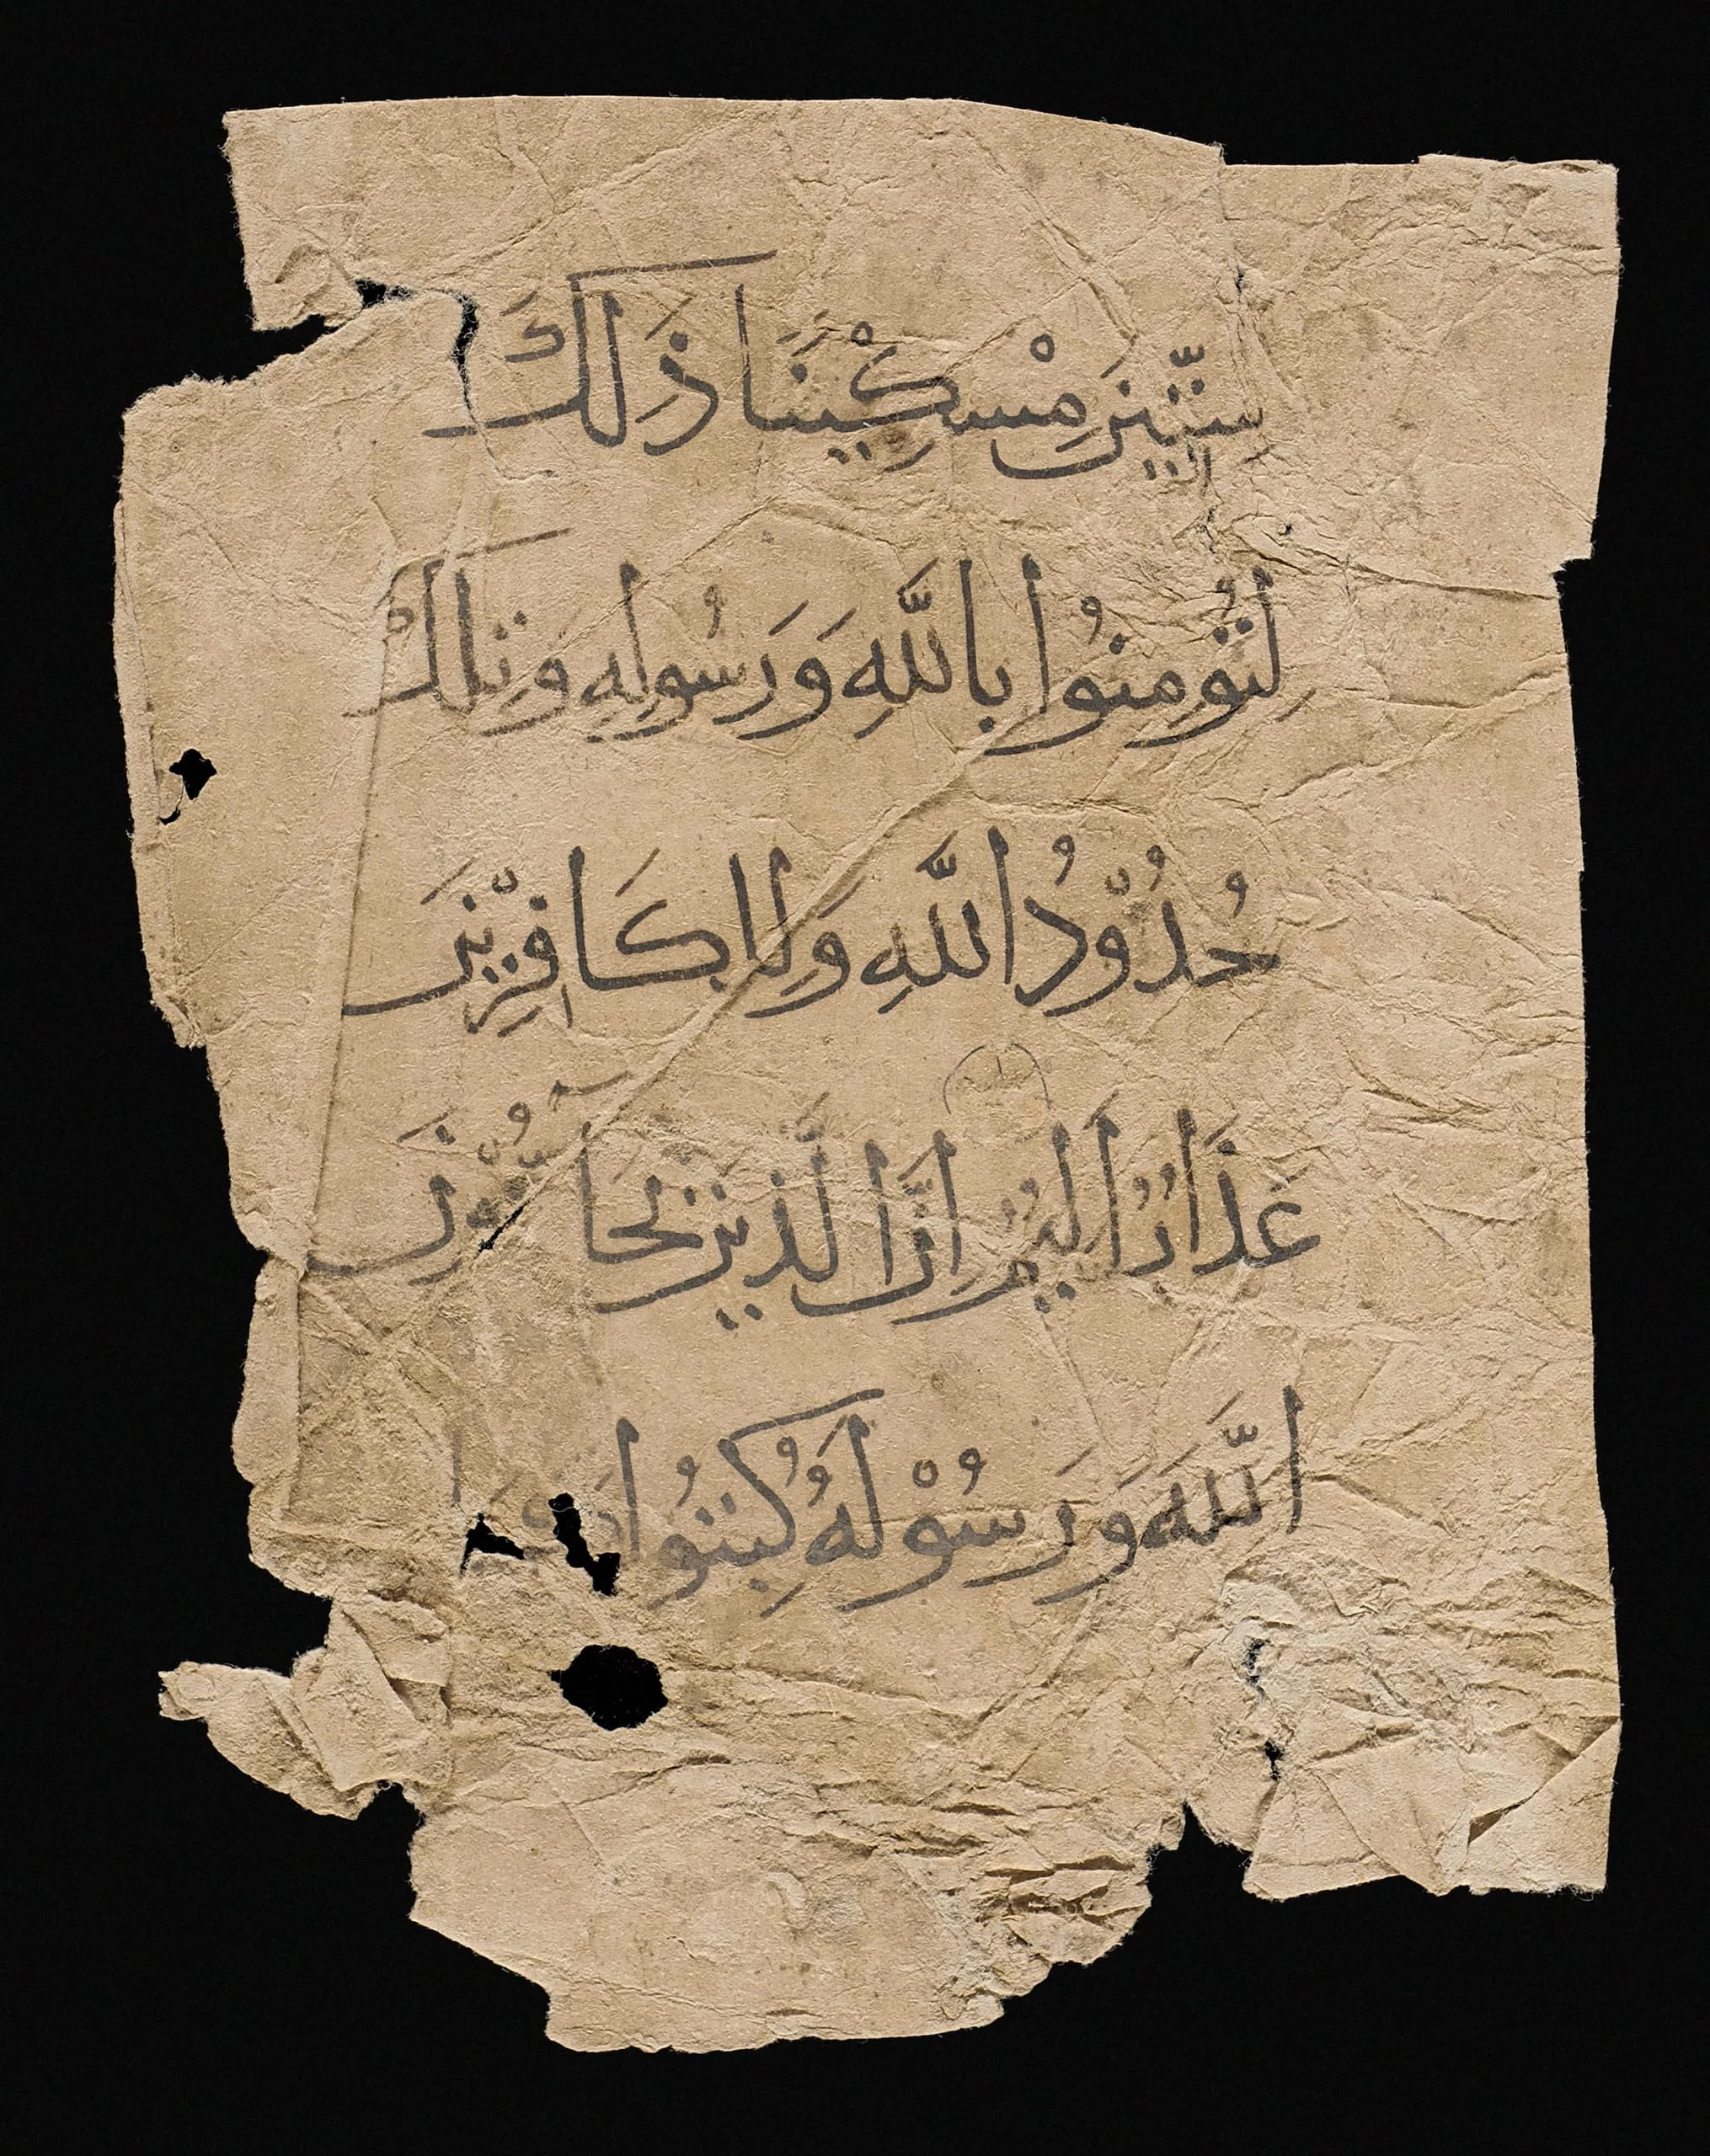 سِتِّيْنَ مِسْكِيْنًا ذَلِكَ
لِتُوْمِنُوا بِاللَّهِ وَرَسُولِهِ وَتِلْكَ
حُدُوْدُ اللَّهِ وَلِلكَافِرِيْنَ
عَذَابٌ أَلِيْمٌ اِنَّ الَّذِيْنَ يُحَآدُّوْنَ
اللَّهَ وَرَسُوْلَهُ كُبِتُوا كَمَا